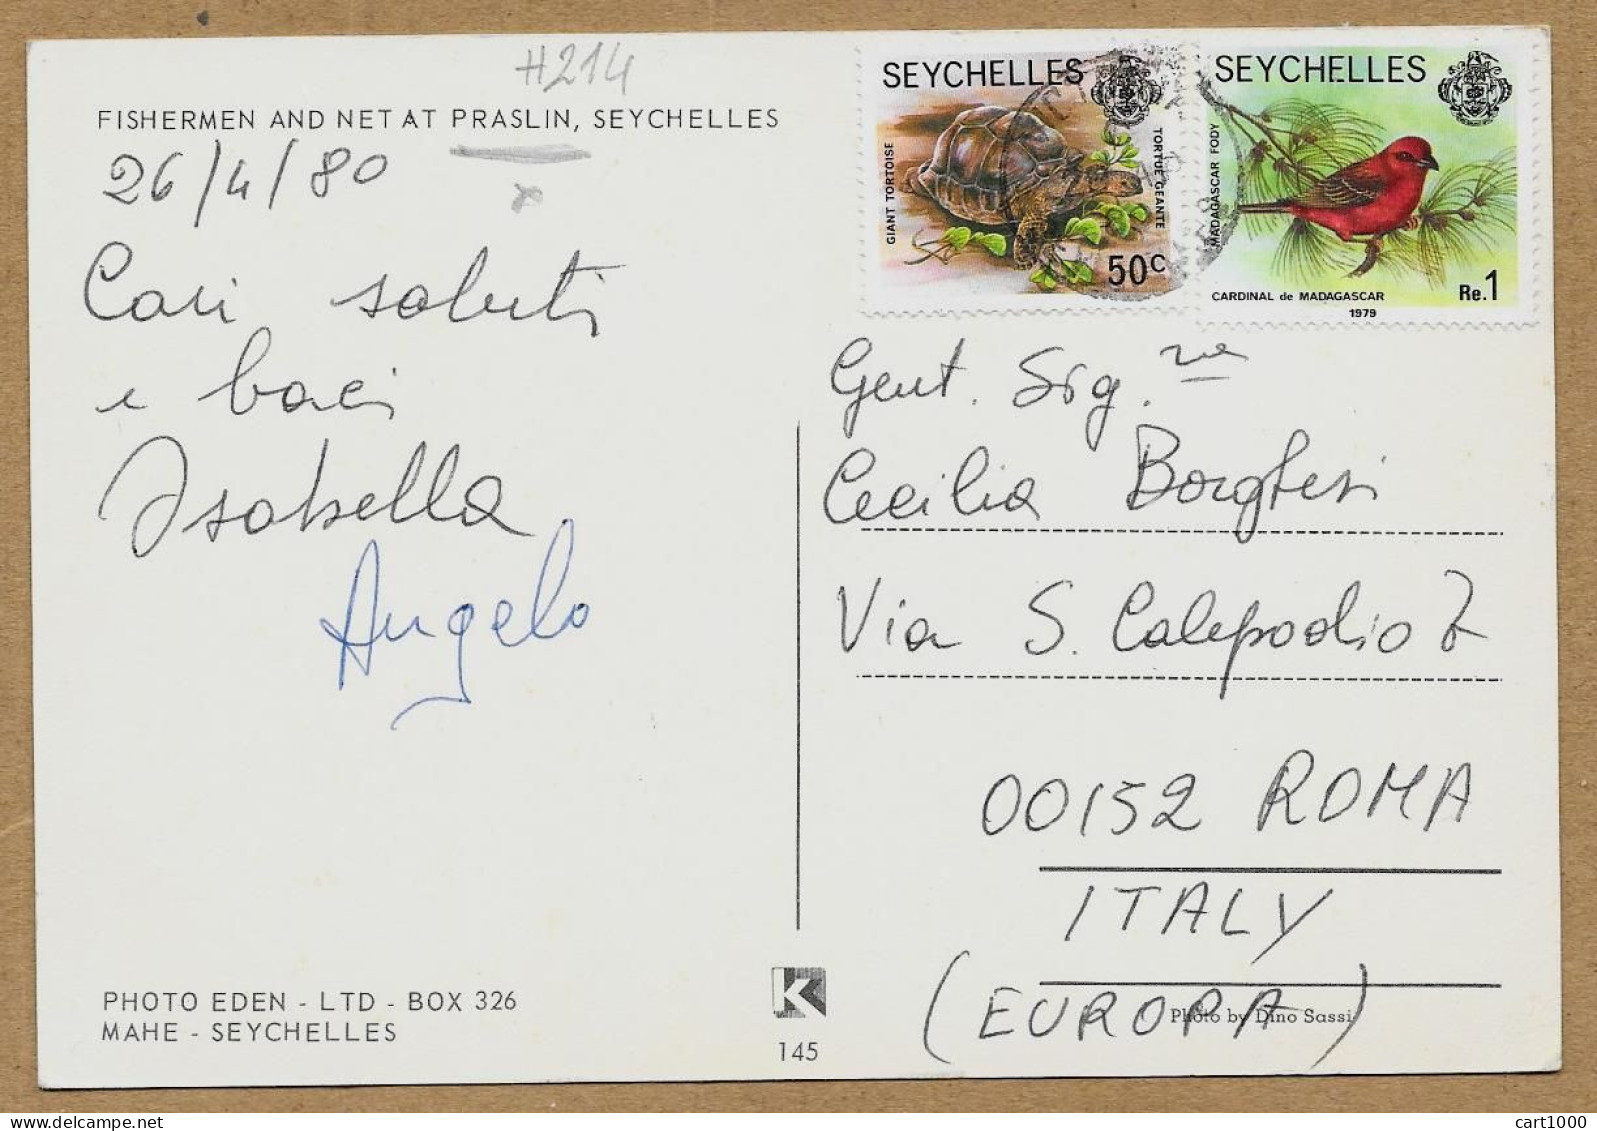 H214
FISHERMEN AND NET AT PRASLIN, SEYCHELLES
26/4/80
Cari saluti
e baci
Isabella
Angelo
PHOTO EDEN - LTD - BOX 326
MAHE - SEYCHELLES
K
145
SEYCHELLES
GIANT TORTOISE
TORTUE GEANTE
50c
SEYCHELLES
MADAGASCAR FODY
CARDINAL de MADAGASCAR
Re.1
1979
Gent. Sig.na
Cecilia Borghesi
Via S. Calepodio 7
00152 ROMA
ITALY
(EUROPA)
Photo by Dino Sassi
cart1000